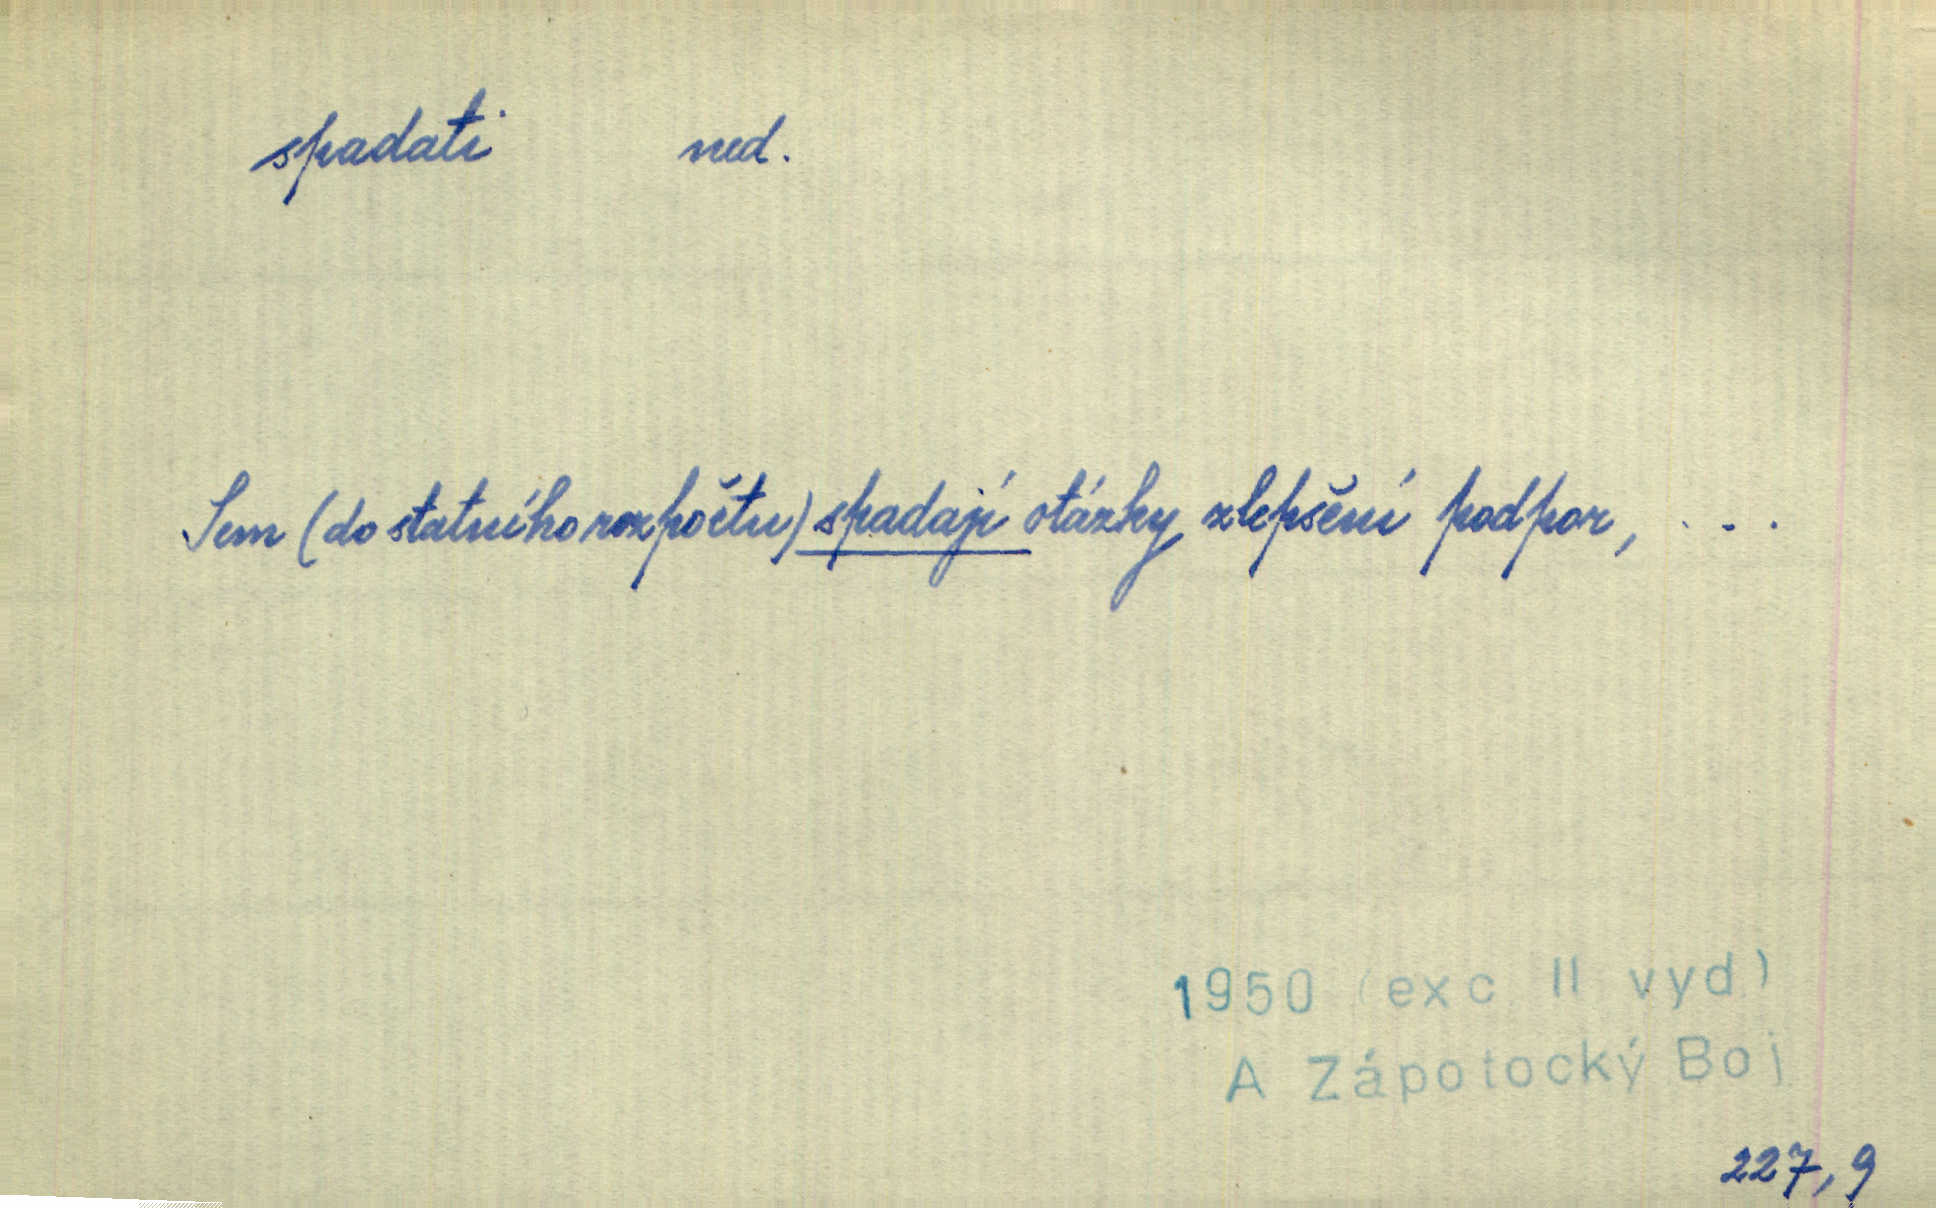 spadati ned.
Sem (do statního rozpočtu) spadají otázky zlepšení podpor, . . .
1950 (exc II vyd)
A Zápotocký Boj
227,9